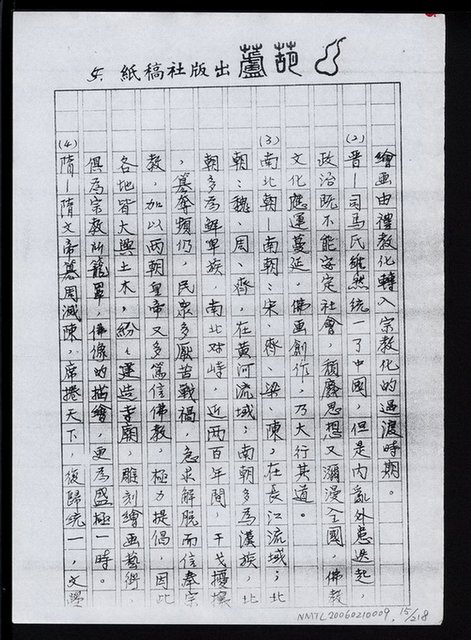 葫蘆出版社稿紙 5.
繪画由禮教化轉入宗教化的過渡時期。
(2) 晋—司馬氏雖然統一了中國，但是内亂外患迭起，
政治既不能安定社會，頹廢思想又瀰漫全國，佛教
文化應運蔓延，佛画創作，乃大行其道。
(3) 南北朝—南朝：宋、齊、梁、陳，在長江流域；北
朝：魏、周、齊，在黄河流域；南朝多為漢族，北
朝多為鮮卑族，南北对峙，近兩百年間，干戈擾攘
，篡奪頻仍，民衆多厭苦戰禍，急求解脫而信奉宗
教，加以兩朝皇帝又多篤信佛教，極力提倡，因此
各地皆大興土木，紛々建造寺廟，雕刻繪画藝術
俱為宗教所籠罩，佛像的描繪，更為盛極一時。
(4) 隋—隋文帝篡周滅陳，席捲天下，復歸統一，文學
NMTL20060210009, 15/218